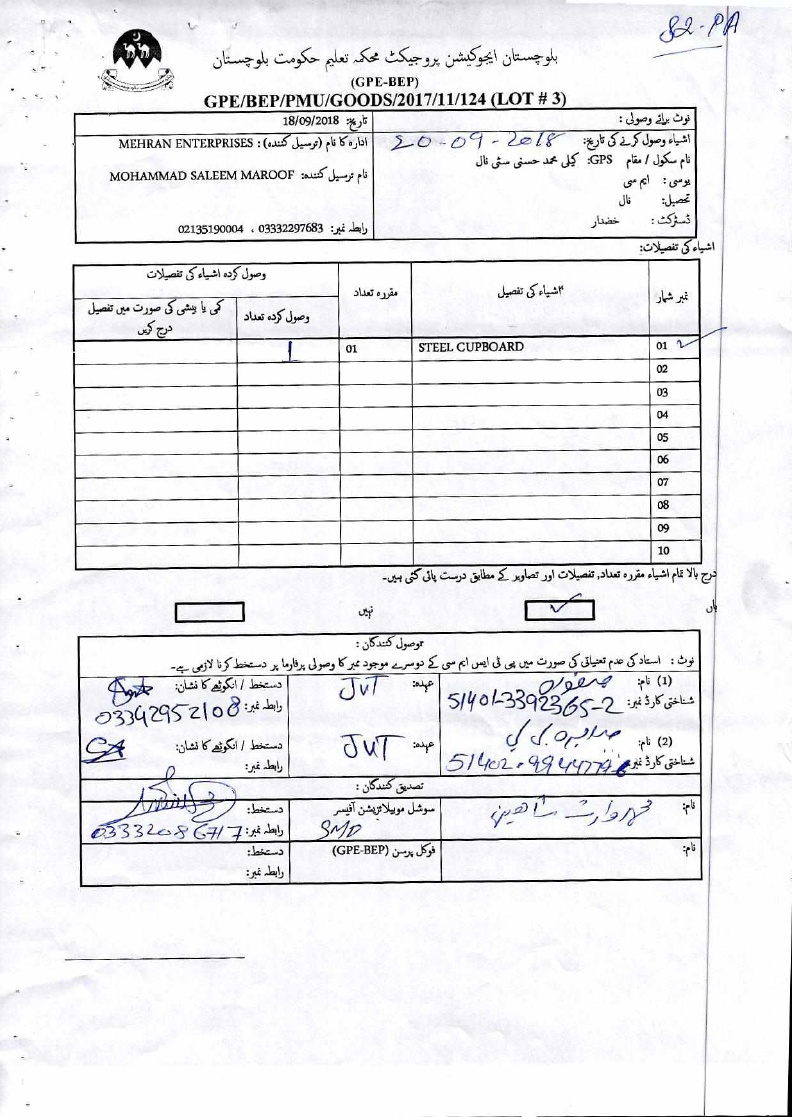 82-PA
بلوچستان ایجوکیشن پروجیکٹ محکمہ تعلیم حکومت بلوچستان
(GPE-BEP)
GPE/BEP/PMU/GOODS/2017/11/124 (LOT # 3)
نوٹ برائے وصولی :
تاریخ: 18/09/2018
اشیاء وصول کرنے کی تاریخ: 20-09-2018
ادارہ کا نام (ترسیل کنندہ) : MEHRAN ENTERPRISES
نام سکول / مقام GPS: کلی محمد حسنی سٹی نال
نام ترسیل کنندہ: MOHAMMAD SALEEM MAROOF
یوسی : ایم سی
تحصیل: نال
ڈسٹرکٹ : خضدار
رابطہ نمبر: 03332297683 ، 02135190004
اشیاء کی تفصیلات:
نمبر شمار
اشیاء کی تفصیل
مقررہ تعداد
وصول کردہ اشیاء کی تفصیلات
وصول کردہ تعداد
کمی یا بیشی کی صورت میں تفصیل درج کریں
01 STEEL CUPBOARD 01 1
02
03
04
05
06
07
08
09
10
درج بالا تمام اشیاء مقررہ تعداد, تفصیلات اور تصاویر کے مطابق درست پائی گئی ہیں۔
ہاں ✓ نہیں
وصول کنندگان :
نوٹ : استاد کی عدم تعنیاتی کی صورت میں پی ٹی ایس ایم سی کے دوسرے موجود ممبر کا وصولی پرفارما پر دستخط کرنا لازمی ہے۔
(1) نام: صفورہ
شناختی کارڈ نمبر: 51401-3392365-2
عہدہ: JVT
دستخط / انگوٹھے کا نشان:
رابطہ نمبر: 03342952108
(2) نام: صابرہ بی بی
شناختی کارڈ نمبر:
عہدہ: JVT
دستخط / انگوٹھے کا نشان:
رابطہ نمبر:
تصدیق کنندگان :
نام:
سوشل موبیلائزیشن آفیسر
SMO
دستخط:
رابطہ نمبر: 03332086717
نام:
فوکل پرسن (GPE-BEP)
دستخط:
رابطہ نمبر: